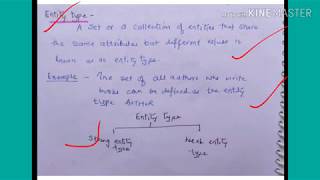 Made with KINEMASTER
Entity type -
A set or a collection of entities that share
the same attributes but different values is
known as an entity type.
Example - The set of all authors who write
books can be defined as the entity
type AUTHOR
Entity type
Strong entity type
Weak entity type